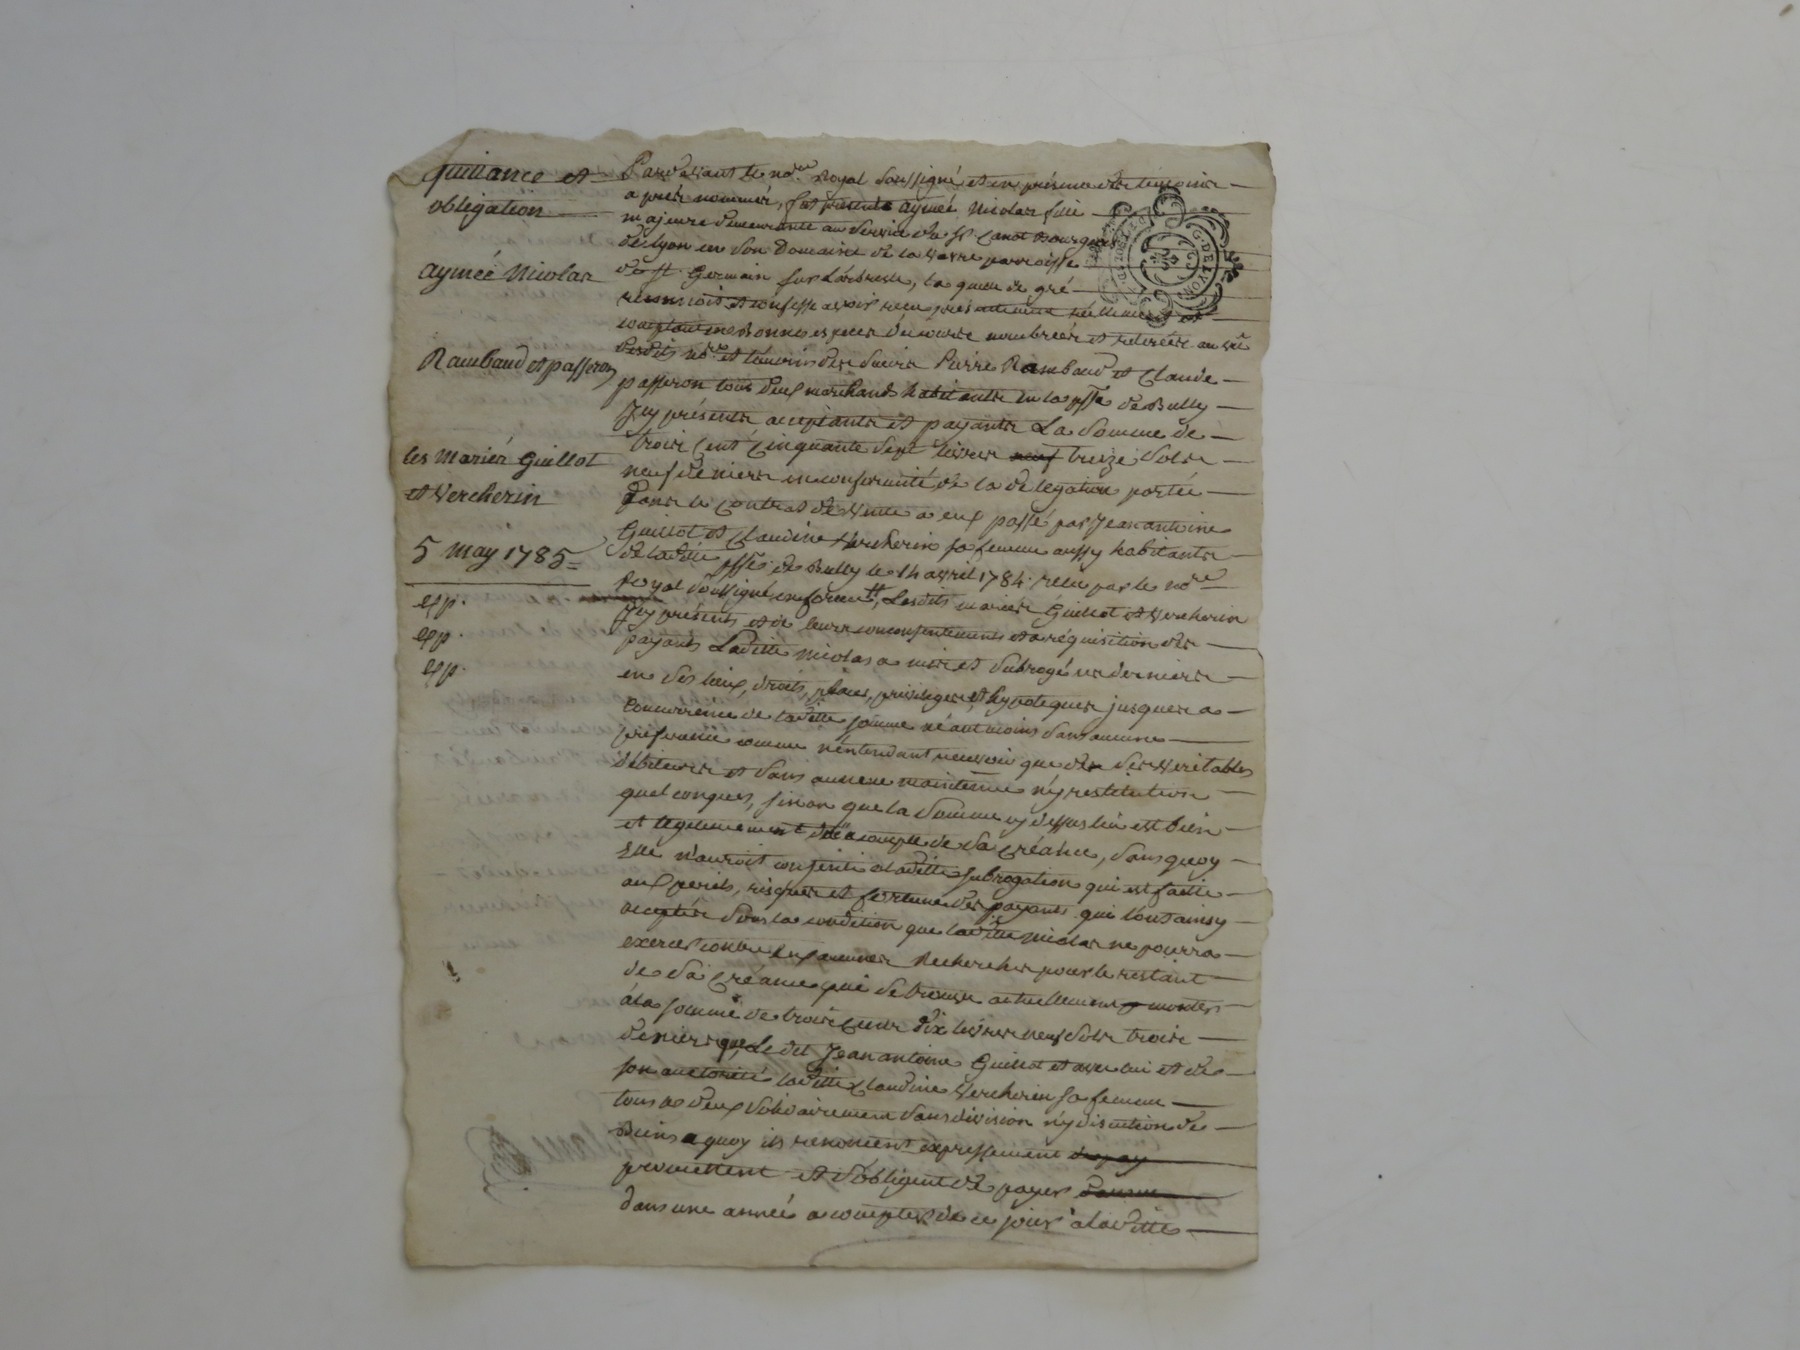 quittance et
obligation
aymée Nicolas
Rambaud et passeron
les mariés Guillot
et Vercherin
5 may 1785
exp.
exp.
exp.
Pardevant le no.re Royal soussigné et en présence des temoins
apres nommés, fut presente aymée Nicolas fille
majeure demeurante au service de sr. Canot Bourgeois
de Lyon en son Domaine de la parroisse
de st. Germain sur Larbresle, laquelle de gré
reconnoit et confesse avoir reçu présentement réellement et
comptant en Bonnes especes du cours nombrées et retirées au vû
desdits no.re et témoins des sieurs Pierre Rambaud et Claude
passeron tous deux marchands habitants en la psse de Bully
Icy présents acceptants et payants La somme de
trois cent cinquante sept livres neuf treize sols
neuf deniers en conformité de la delegation portée
dans le contrat de vente a eux passé par Jean antoine
Guillot et Claudine Vercherin sa femme aussy habitants
de ladite psse de Bully le 14 avril 1784 reçu par le no.re
Royal soussigné, Lesdits mariés Guillot et Vercherin
Icy présents et de leurs consentements et a réquisition des
payants Ladite Nicolas a mis et subrogé ces derniers
en ses lieux, droits, places, privileges et hypoteques jusques a
concurrence de ladite somme néantmoins sans aucune
préférance comme n'entendant recevoir que des ses veritables
débiteurs et sans aucune maintenue n'y restitution
quelconques, sinon que la somme cy dessus lui est bien
et légitimement due a compte de sa créance, sans quoy
Elle n'auroit consenti a ladite subrogation qui est faitte
aux perils, risques et fortune des payants qui l'ont ainsy
acceptée sous la condition que ladite Nicolas ne pourra
exercer contre eux aucunes Recherches pour le restant
de sa créance qui se trouve actuellement monter
à la somme de trois cents dix livres neuf sols trois
deniers que Ledit Jean antoine Guillot et avec lui et de
son auctorité ladite Claudine Vercherin sa femme
tous deux solidairement sans division n'y discution de
Biens a quoy ils renoncent expressement
promettent et s'obligent de payer
dans une année a compter de ce jour a ladite
G. DE LYON